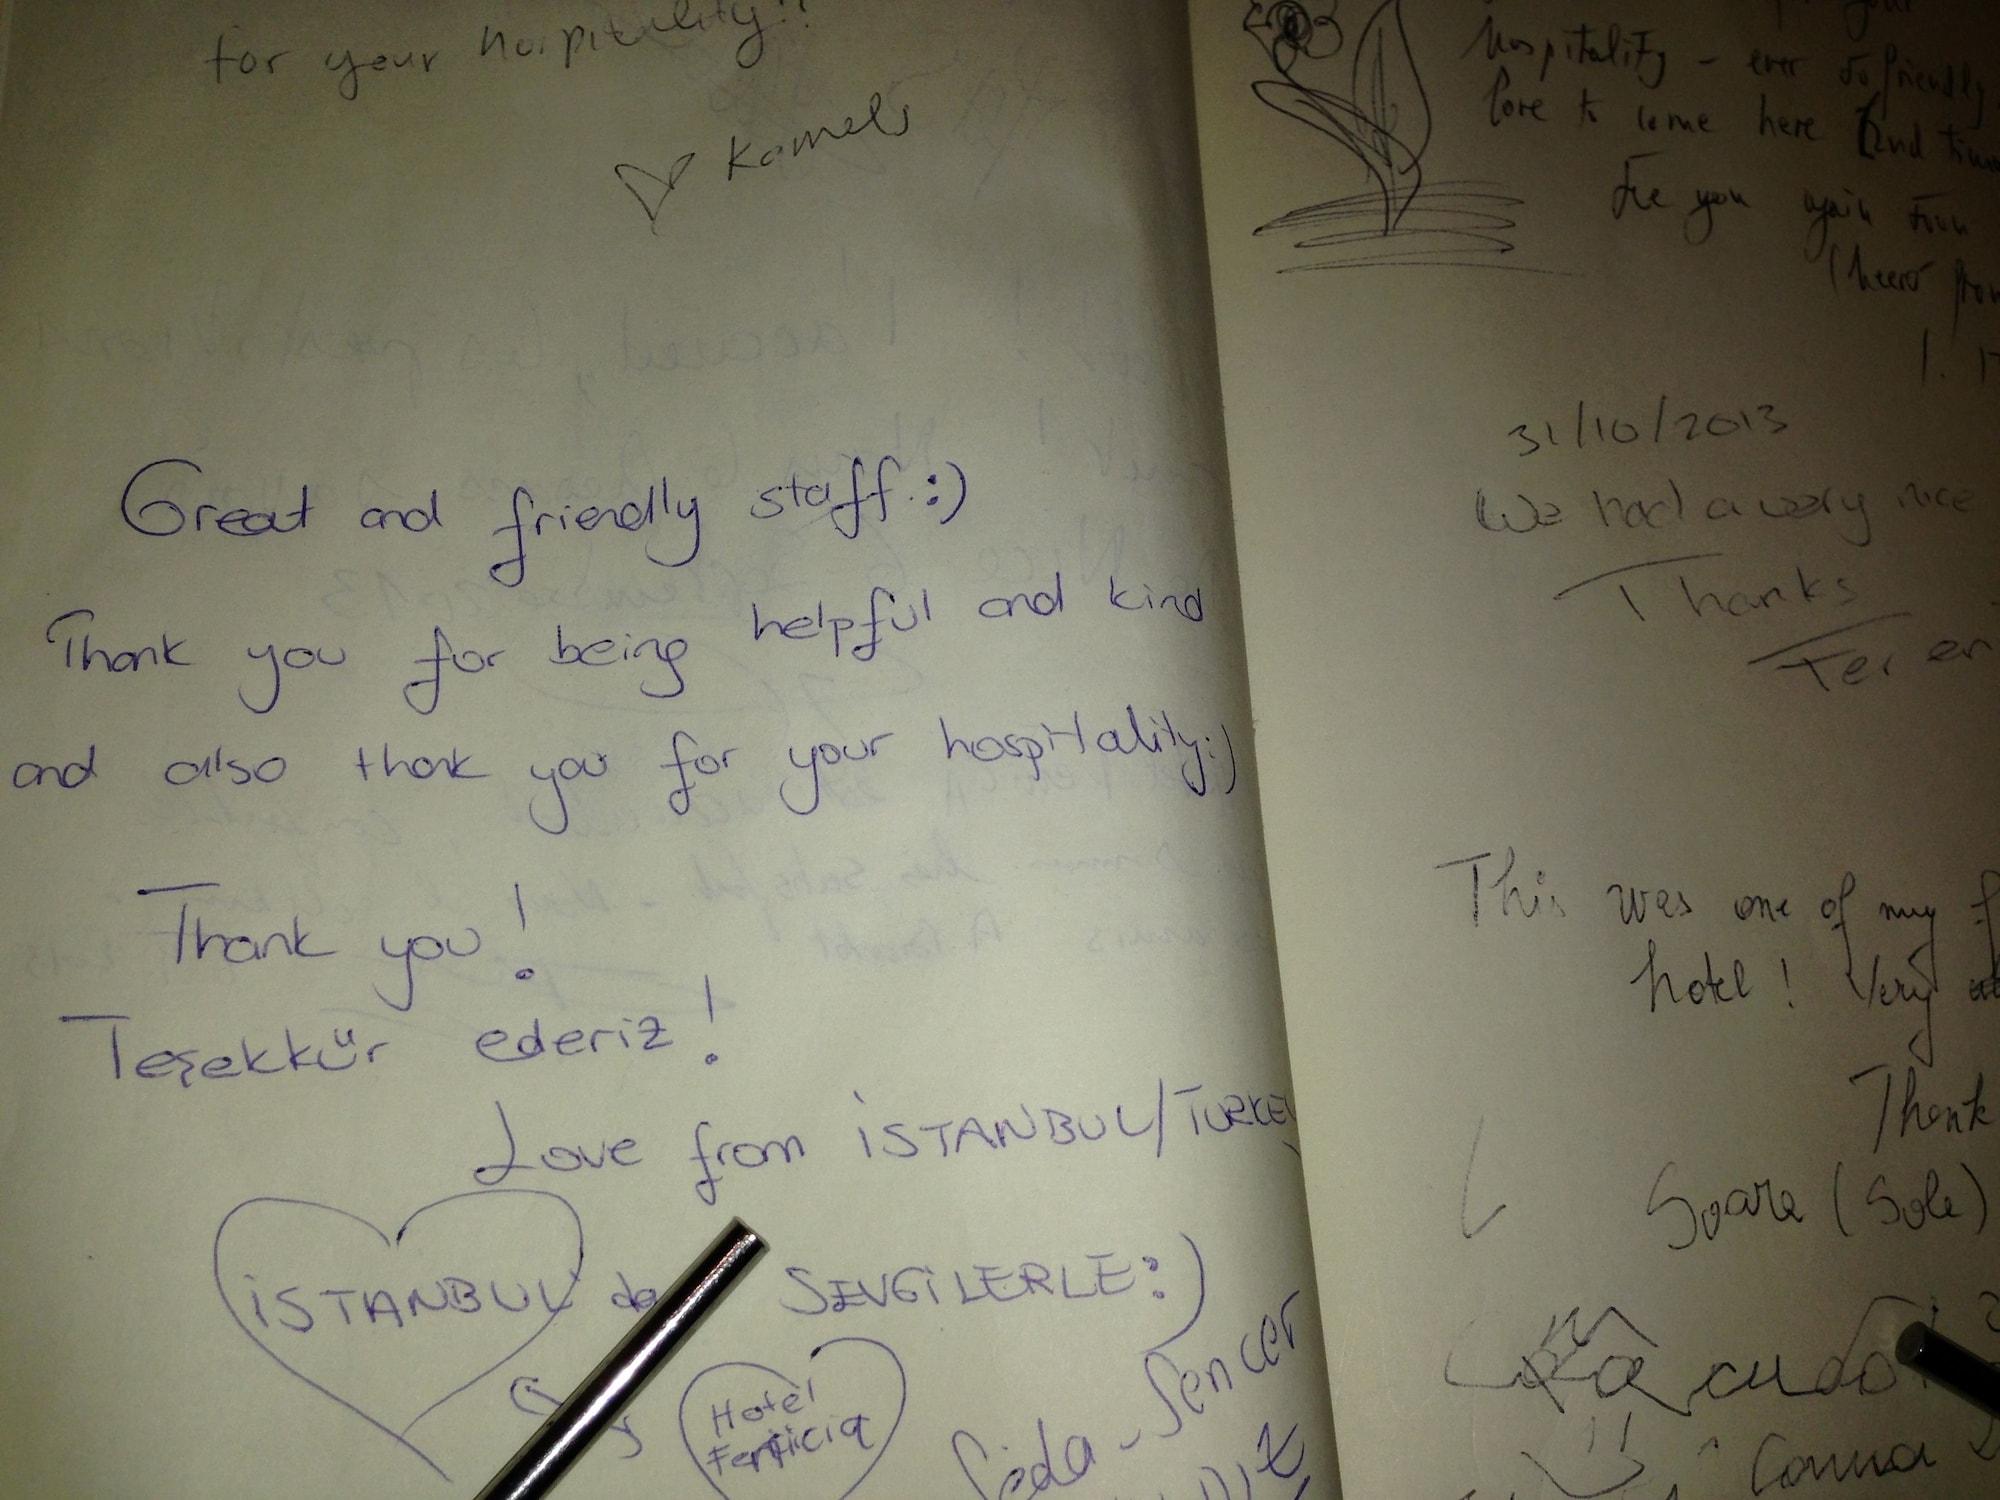 for your hospitality!!
Kamels
Great and friendly staff :)
Thank you for being helpful and kind
and also thank you for your hospitality :)
Thank you!
Teşekkür ederiz!
Love from İSTANBUL/TURKEY
İSTANBUL da SEVGİLERLE :)
Hotel
Seda - Sencer
your
hospitality - ever so friendly
love to come here (2nd time
See you again
31/10/2013
We had a very nice
Thanks
This was one of my f
hotel! Very
Thank
Soara (Sole)